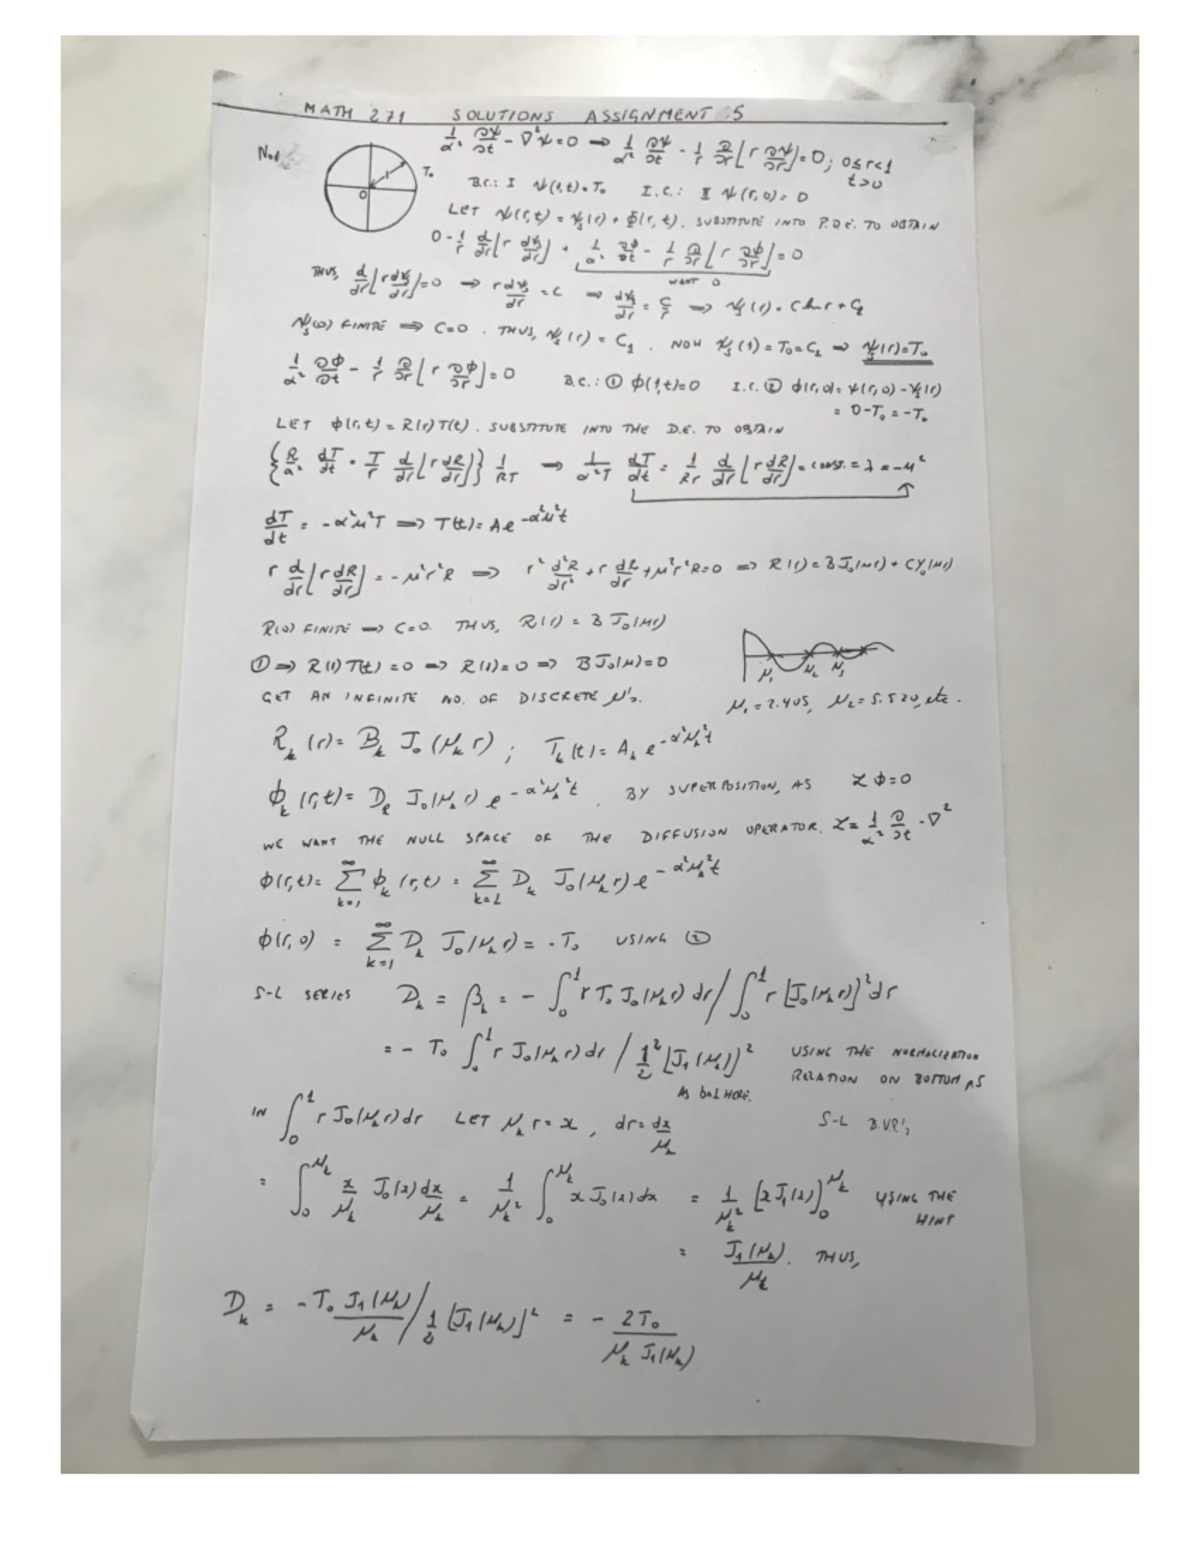 MATH 271 SOLUTIONS ASSIGNMENT 5
No.1
1/α² ∂ψ/∂t - ∇²ψ = 0 ⇒ 1/α² ∂ψ/∂t - 1/r ∂/∂r[r ∂ψ/∂r] = 0; 0≤r<1
t>0
T₀
0
1
B.C.: I ψ(1,t) = T₀ I.C.: II ψ(r,0) = 0
LET ψ(r,t) = ψₛ(r) + Φ(r,t). SUBSTITUTE INTO P.D.E. TO OBTAIN
0 - 1/r d/dr[r dψₛ/dr] + 1/α² ∂ϕ/∂t - 1/r ∂/∂r[r ∂ϕ/∂r] = 0
WANT 0
THUS, d/dr[r dψₛ/dr] = 0 ⇒ r dψₛ/dr = C ⇒ dψₛ/dr = C/r ⇒ ψₛ(r) = C ln r + C₁
ψₛ(0) FINITE ⇒ C=0. THUS, ψₛ(r) = C₁. NOW ψₛ(1) = T₀ = C₁ ⇒ ψₛ(r) = T₀
1/α² ∂ϕ/∂t - 1/r ∂/∂r[r ∂ϕ/∂r] = 0 B.C.: ① ϕ(1,t)=0 I.C. ② ϕ(r,0) = ψ(r,0) - ψₛ(r)
= 0 - T₀ = -T₀
LET ϕ(r,t) = R(r)T(t). SUBSTITUTE INTO THE D.E. TO OBTAIN
{R/α² dT/dt = T/r d/dr[r dR/dr]} 1/RT ⇒ 1/α²T dT/dt = 1/Rr d/dr[r dR/dr] = CONST. = λ = -μ²
dT/dt = -α²μ²T ⇒ T(t) = A e^-α²μ²t
r d/dr[r dR/dr] = -μ²r²R ⇒ r² d²R/dr² + r dR/dr + μ²r²R = 0 ⇒ R(r) = B J₀(μr) + C Y₀(μr)
R(0) FINITE ⇒ C=0. THUS, R(r) = B J₀(μr)
① ⇒ R(1)T(t) = 0 ⇒ R(1) = 0 ⇒ B J₀(μ) = 0
μ₁ μ₂ μ₃
GET AN INFINITE NO. OF DISCRETE μ's.
μ₁ = 2.405, μ₂ = 5.520, etc.
Rₖ(r) = Bₖ J₀(μₖ r); Tₖ(t) = Aₖ e^-α²μₖ²t
ϕₖ(r,t) = Dₖ J₀(μₖ r) e^-α²μₖ²t. BY SUPERPOSITION, AS ℒϕ=0
WE WANT THE NULL SPACE OF THE DIFFUSION OPERATOR. ℒ = 1/α² ∂/∂t - ∇²
ϕ(r,t) = ∑_{k=1}^∞ ϕₖ(r,t) = ∑_{k=1}^∞ Dₖ J₀(μₖ r) e^-α²μₖ²t
ϕ(r,0) = ∑_{k=1}^∞ Dₖ J₀(μₖ r) = -T₀ USING ②
S-L SERIES Dₖ = βₖ = -∫₀¹ r T₀ J₀(μₖ r) dr / ∫₀¹ r [J₀(μₖ r)]² dr
= -T₀ ∫₀¹ r J₀(μₖ r) dr / 1²/2 [J₁(μₖ)]² USING THE NORMALIZATION
RELATION ON BOTTOM p.5
AS b=1 HERE.
S-L B.V.P.'s
IN ∫₀¹ r J₀(μₖ r) dr LET μₖ r = x, dr = dx/μₖ
= ∫₀^μₖ x/μₖ J₀(x) dx/μₖ = 1/μₖ² ∫₀^μₖ x J₀(x) dx = 1/μₖ² [x J₁(x)]₀^μₖ USING THE
HINT
= J₁(μₖ)/μₖ. THUS,
Dₖ = -T₀ J₁(μₖ)/μₖ / 1/2 [J₁(μₖ)]² = - 2T₀/μₖ J₁(μₖ)